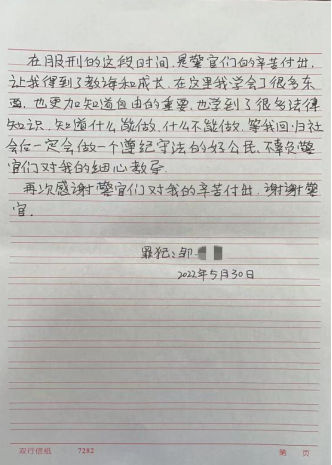 在服刑的这段时间,是警官们的辛苦付出,
让我得到了教诲和成长,在这里我学会了很多东
西,也更加知道自由的重要,也学到了很多法律
知识,知道什么能做,什么不能做,等我回归社
会后一定会做一个遵纪守法的好公民,不辜负警
官们对我的细心教导.
再次感谢警官们对我的辛苦付出,谢谢警
官.
罪犯:邹
2022年5月30日
双行信纸 7282 第 页